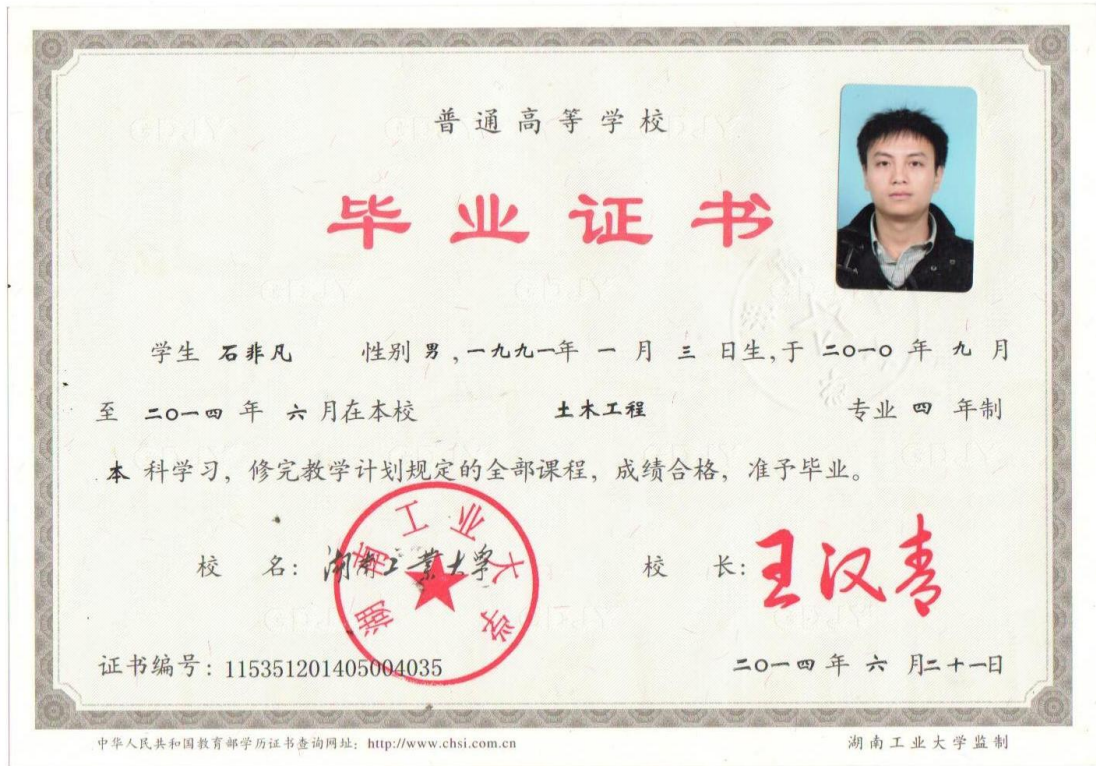 普通高等学校
毕业证书
学生 石非凡 性别 男，一九九一年 一 月 三 日生，于 二〇一〇 年 九 月
至 二〇一四 年 六 月在本校 土木工程 专业 四 年制
本 科学习，修完教学计划规定的全部课程，成绩合格，准予毕业。
校 名：湖南工業大学
湖南工业大学
校 长：王汉青
证书编号：115351201405004035
二〇一四 年 六 月二十一日
中华人民共和国教育部学历证书查询网址：http://www.chsi.com.cn
湖南工业大学监制